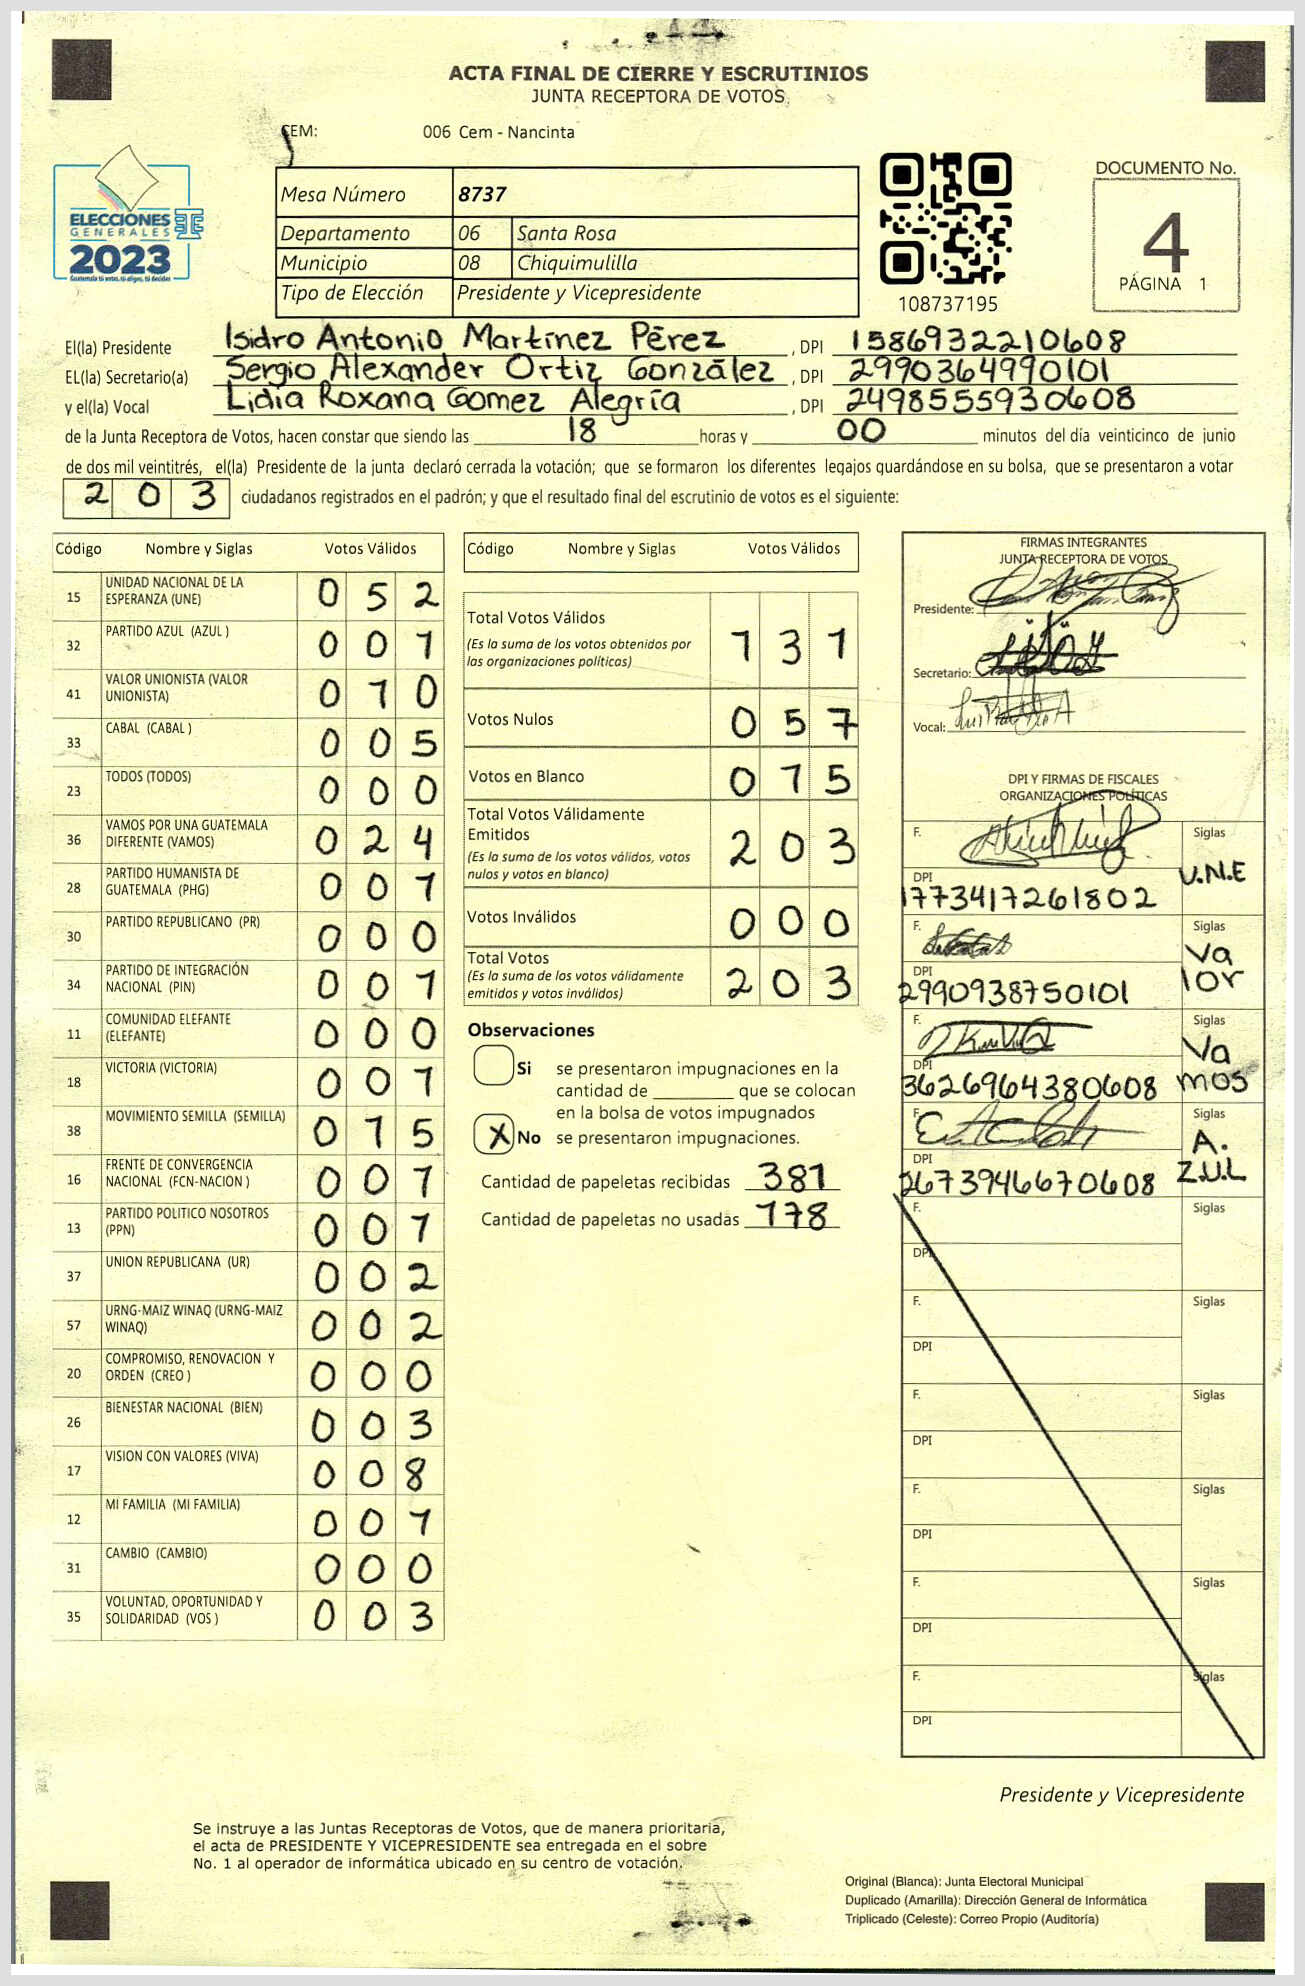 ACTA FINAL DE CIERRE Y ESCRUTINIOS
JUNTA RECEPTORA DE VOTOS
CEM: 006 Cem - Nancinta
ELECCIONES
GENERALES
2023
Guatemala tú votas, tú eliges, tú decides
Mesa Número 8737
Departamento 06 Santa Rosa
Municipio 08 Chiquimulilla
Tipo de Elección Presidente y Vicepresidente
108737195
DOCUMENTO No.
4
PÁGINA 1
El(la) Presidente Isidro Antonio Martínez Pérez , DPI 1586932210608
EL(la) Secretario(a) Sergio Alexander Ortiz González , DPI 2990364990101
y el(la) Vocal Lidia Roxana Gomez Alegría , DPI 2498555930608
de la Junta Receptora de Votos, hacen constar que siendo las 18 horas y 00 minutos del día veinticinco de junio
de dos mil veintitrés, el(la) Presidente de la junta declaró cerrada la votación; que se formaron los diferentes legajos guardándose en su bolsa, que se presentaron a votar
203 ciudadanos registrados en el padrón; y que el resultado final del escrutinio de votos es el siguiente:
Código Nombre y Siglas Votos Válidos
15 UNIDAD NACIONAL DE LA ESPERANZA (UNE) 052
32 PARTIDO AZUL (AZUL ) 001
41 VALOR UNIONISTA (VALOR UNIONISTA) 010
33 CABAL (CABAL ) 005
23 TODOS (TODOS) 000
36 VAMOS POR UNA GUATEMALA DIFERENTE (VAMOS) 024
28 PARTIDO HUMANISTA DE GUATEMALA (PHG) 001
30 PARTIDO REPUBLICANO (PR) 000
34 PARTIDO DE INTEGRACIÓN NACIONAL (PIN) 001
11 COMUNIDAD ELEFANTE (ELEFANTE) 000
18 VICTORIA (VICTORIA) 001
38 MOVIMIENTO SEMILLA (SEMILLA) 015
16 FRENTE DE CONVERGENCIA NACIONAL (FCN-NACION ) 001
13 PARTIDO POLITICO NOSOTROS (PPN) 001
37 UNION REPUBLICANA (UR) 002
57 URNG-MAIZ WINAQ (URNG-MAIZ WINAQ) 002
20 COMPROMISO, RENOVACION Y ORDEN (CREO ) 000
26 BIENESTAR NACIONAL (BIEN) 003
17 VISION CON VALORES (VIVA) 008
12 MI FAMILIA (MI FAMILIA) 001
31 CAMBIO (CAMBIO) 000
35 VOLUNTAD, OPORTUNIDAD Y SOLIDARIDAD (VOS ) 003
Código Nombre y Siglas Votos Válidos
Total Votos Válidos 131
(Es la suma de los votos obtenidos por
las organizaciones políticas)
Votos Nulos 057
Votos en Blanco 015
Total Votos Válidamente
Emitidos 203
(Es la suma de los votos válidos, votos
nulos y votos en blanco)
Votos Inválidos 000
Total Votos 203
(Es la suma de los votos válidamente
emitidos y votos inválidos)
Observaciones
Si se presentaron impugnaciones en la
cantidad de que se colocan
en la bolsa de votos impugnados
X No se presentaron impugnaciones.
Cantidad de papeletas recibidas 381
Cantidad de papeletas no usadas 178
FIRMAS INTEGRANTES
JUNTA RECEPTORA DE VOTOS
Presidente:
Secretario:
Vocal:
DPI Y FIRMAS DE FISCALES
ORGANIZACIONES POLÍTICAS
F. Siglas
U.N.E
DPI
1773417261802
F. Siglas
Va
lor
DPI
2990938750101
F. Siglas
Va
mos
DPI
3626964380608
F. Siglas
A.
Z.U.L
DPI
2673946670608
F. Siglas
DPI
F. Siglas
DPI
F. Siglas
DPI
F. Siglas
DPI
F. Siglas
DPI
F. Siglas
DPI
Presidente y Vicepresidente
Se instruye a las Juntas Receptoras de Votos, que de manera prioritaria,
el acta de PRESIDENTE Y VICEPRESIDENTE sea entregada en el sobre
No. 1 al operador de informática ubicado en su centro de votación.
Original (Blanca): Junta Electoral Municipal
Duplicado (Amarilla): Dirección General de Informática
Triplicado (Celeste): Correo Propio (Auditoría)